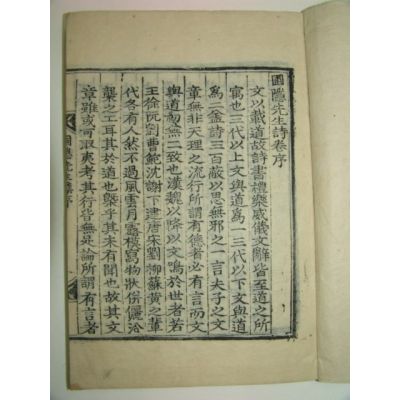 圃隱先生詩卷序
文以載道故詩書禮樂威儀文辭皆至道之所
寓也三代以上文與道爲一三代以下文與道
爲二盖詩三百蔽以思無邪之一言夫子之文
章無非天理之流行所謂有德者必有言而文
與道初無二致也漢魏以降以文鳴於世者若
王徐阮劉曹鮑沈謝下逮唐宋劉柳蘇黃之輩
代各有人然不過風雲月露模寫物狀儷洽
襲之工耳其於道也槩乎其未有聞也故其文
章雖或可取夷考其行皆無足論所謂有言者
圃隱先生集序